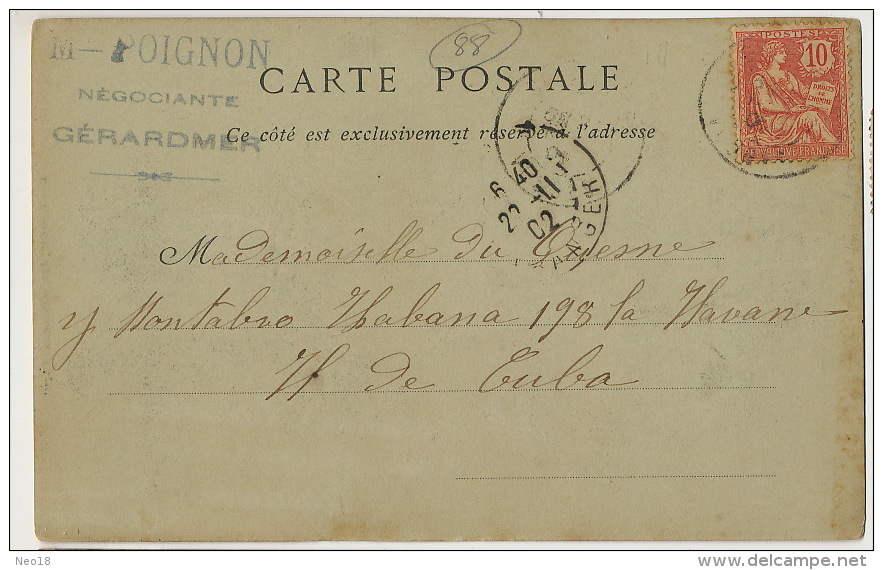 M— POIGNON
NÉGOCIANTE
GÉRARDMER
88
CARTE POSTALE
Ce côté est exclusivement réservé à l'adresse
POSTES
10
DROITS DE L'HOMME
REPUBLIQUE FRANÇAISE
6 40
22 -11
02
ETRANGER
Mademoiselle du Quesne
y Montabro Habana 198 la Havane
H de Cuba
Neo18
www.delcampe.net